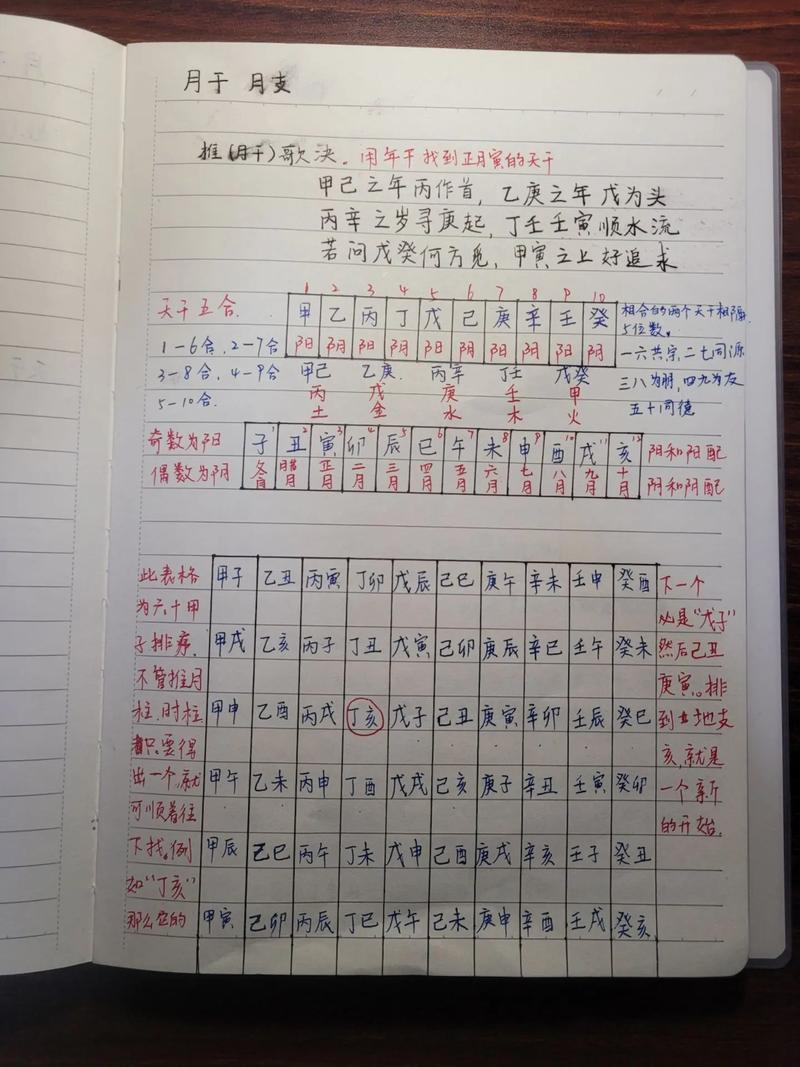 月干 月支
推(月干)歌决.用年干找到正月寅的天干
甲己之年丙作首,乙庚之年戊为头
丙辛之岁寻庚起,丁壬壬寅顺水流
若问戊癸何方觅,甲寅之上好追求
1 2 3 4 5 6 7 8 9 10
天干五合. 甲 乙 丙 丁 戊 己 庚 辛 壬 癸 相合的两个天干相隔
5位数。
1-6合,2-7合 阳 阴 阳 阴 阳 阴 阳 阴 阳 阴 一六共宗,二七同源
3-8合,4-9合 甲己 乙庚. 丙辛 丁壬 戊癸 三八为朋,四九为友
5-10合. 丙 戊 庚 壬 甲 五十同德
土 金 水 木 火
奇数为阳 子1 丑2 寅3 卯4 辰5 巳6 午7 未8 申9 酉10 戌11 亥12 阳和阳配
偶数为阴 冬月 腊月 正月 二月 三月 四月 五月 六月 七月 八月 九月 十月 阴和阴配
此表格 甲子 乙丑 丙寅 丁卯 戊辰 己巳 庚午 辛未 壬申 癸酉 下一个
为六十甲 必是"戊子"
子排序. 甲戌 乙亥 丙子 丁丑 戊寅 己卯 庚辰 辛巳 壬午 癸未 然后己丑
不管推月 庚寅。排
柱.时柱 甲申 乙酉 丙戌 丁亥 戊子 己丑 庚寅 辛卯 壬辰 癸巳 到地支
都只要得 亥,就是
出一个,就 甲午 乙未 丙申 丁酉 戊戌 己亥 庚子 辛丑 壬寅 癸卯 一个新
可顺着往 的开始.
下找。例 甲辰 己巳 丙午 丁未 戊申 己酉 庚戌 辛亥 壬子 癸丑
如"丁亥"
那么它的 甲寅 己卯 丙辰 丁巳 戊午 己未 庚申 辛酉 壬戌 癸亥